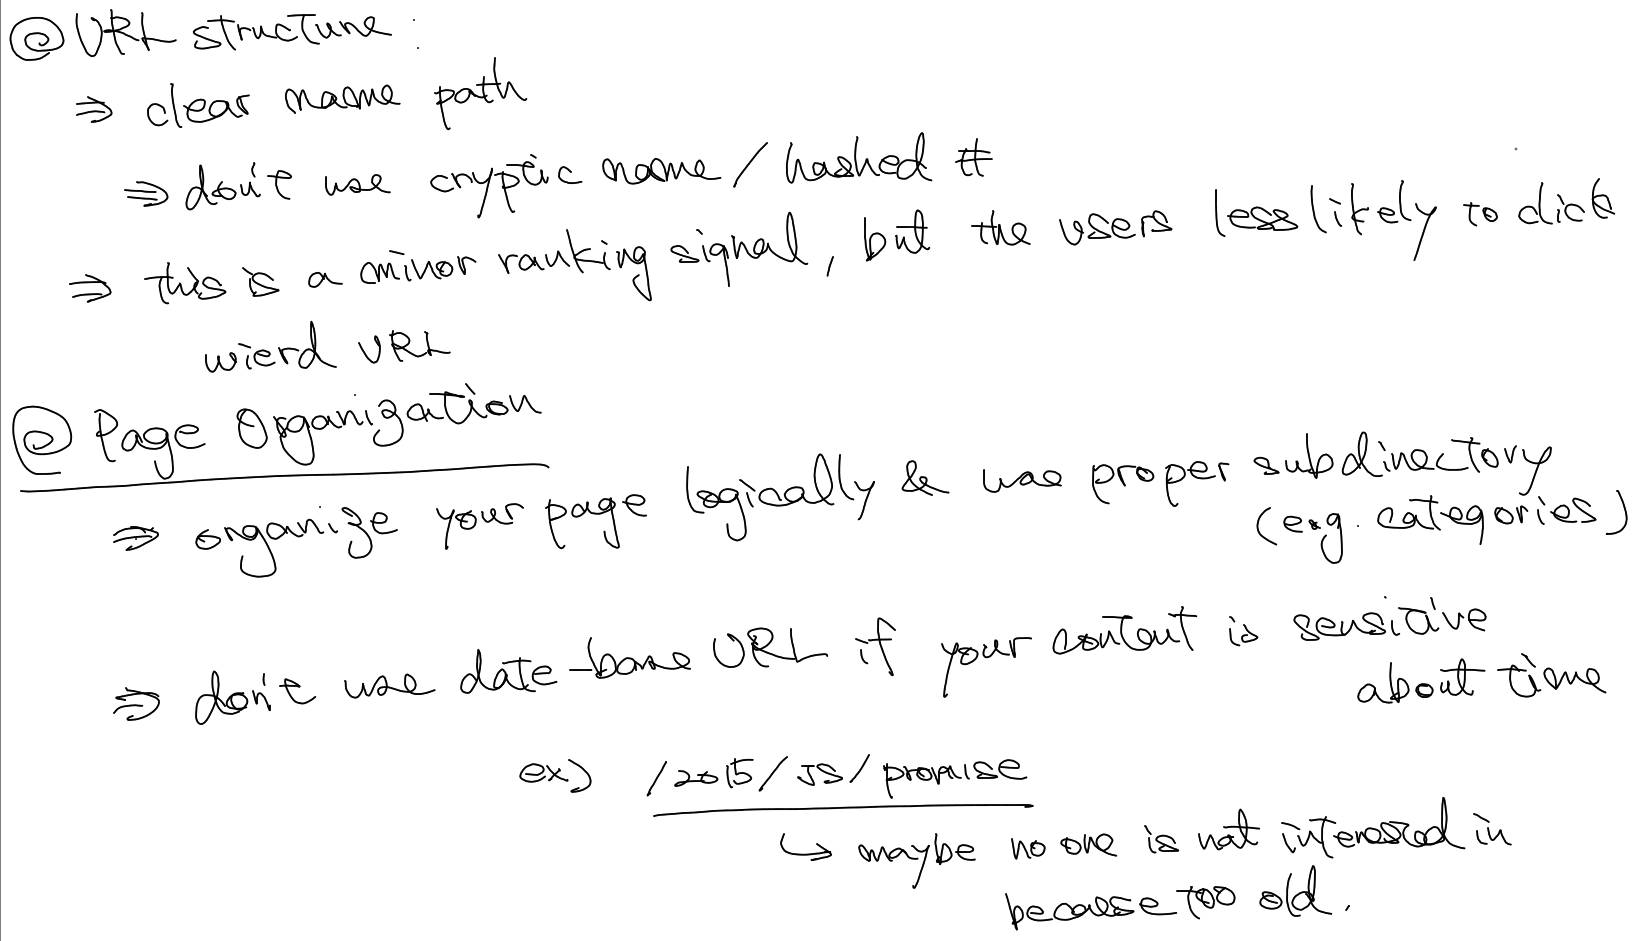 @ URL structure:
⇒ clear name path
⇒ don't use cryptic name / hashed #
⇒ this is a minor ranking signal, but the users less likely to click
wierd URL
@ Page Organization
⇒ organize your page logically & use proper subdirectory
(e.g. categories)
⇒ don't use date-base URL if your content is sensitive
about time
ex) /2015/JS/promise
↳ maybe no one is not interested in
because too old.